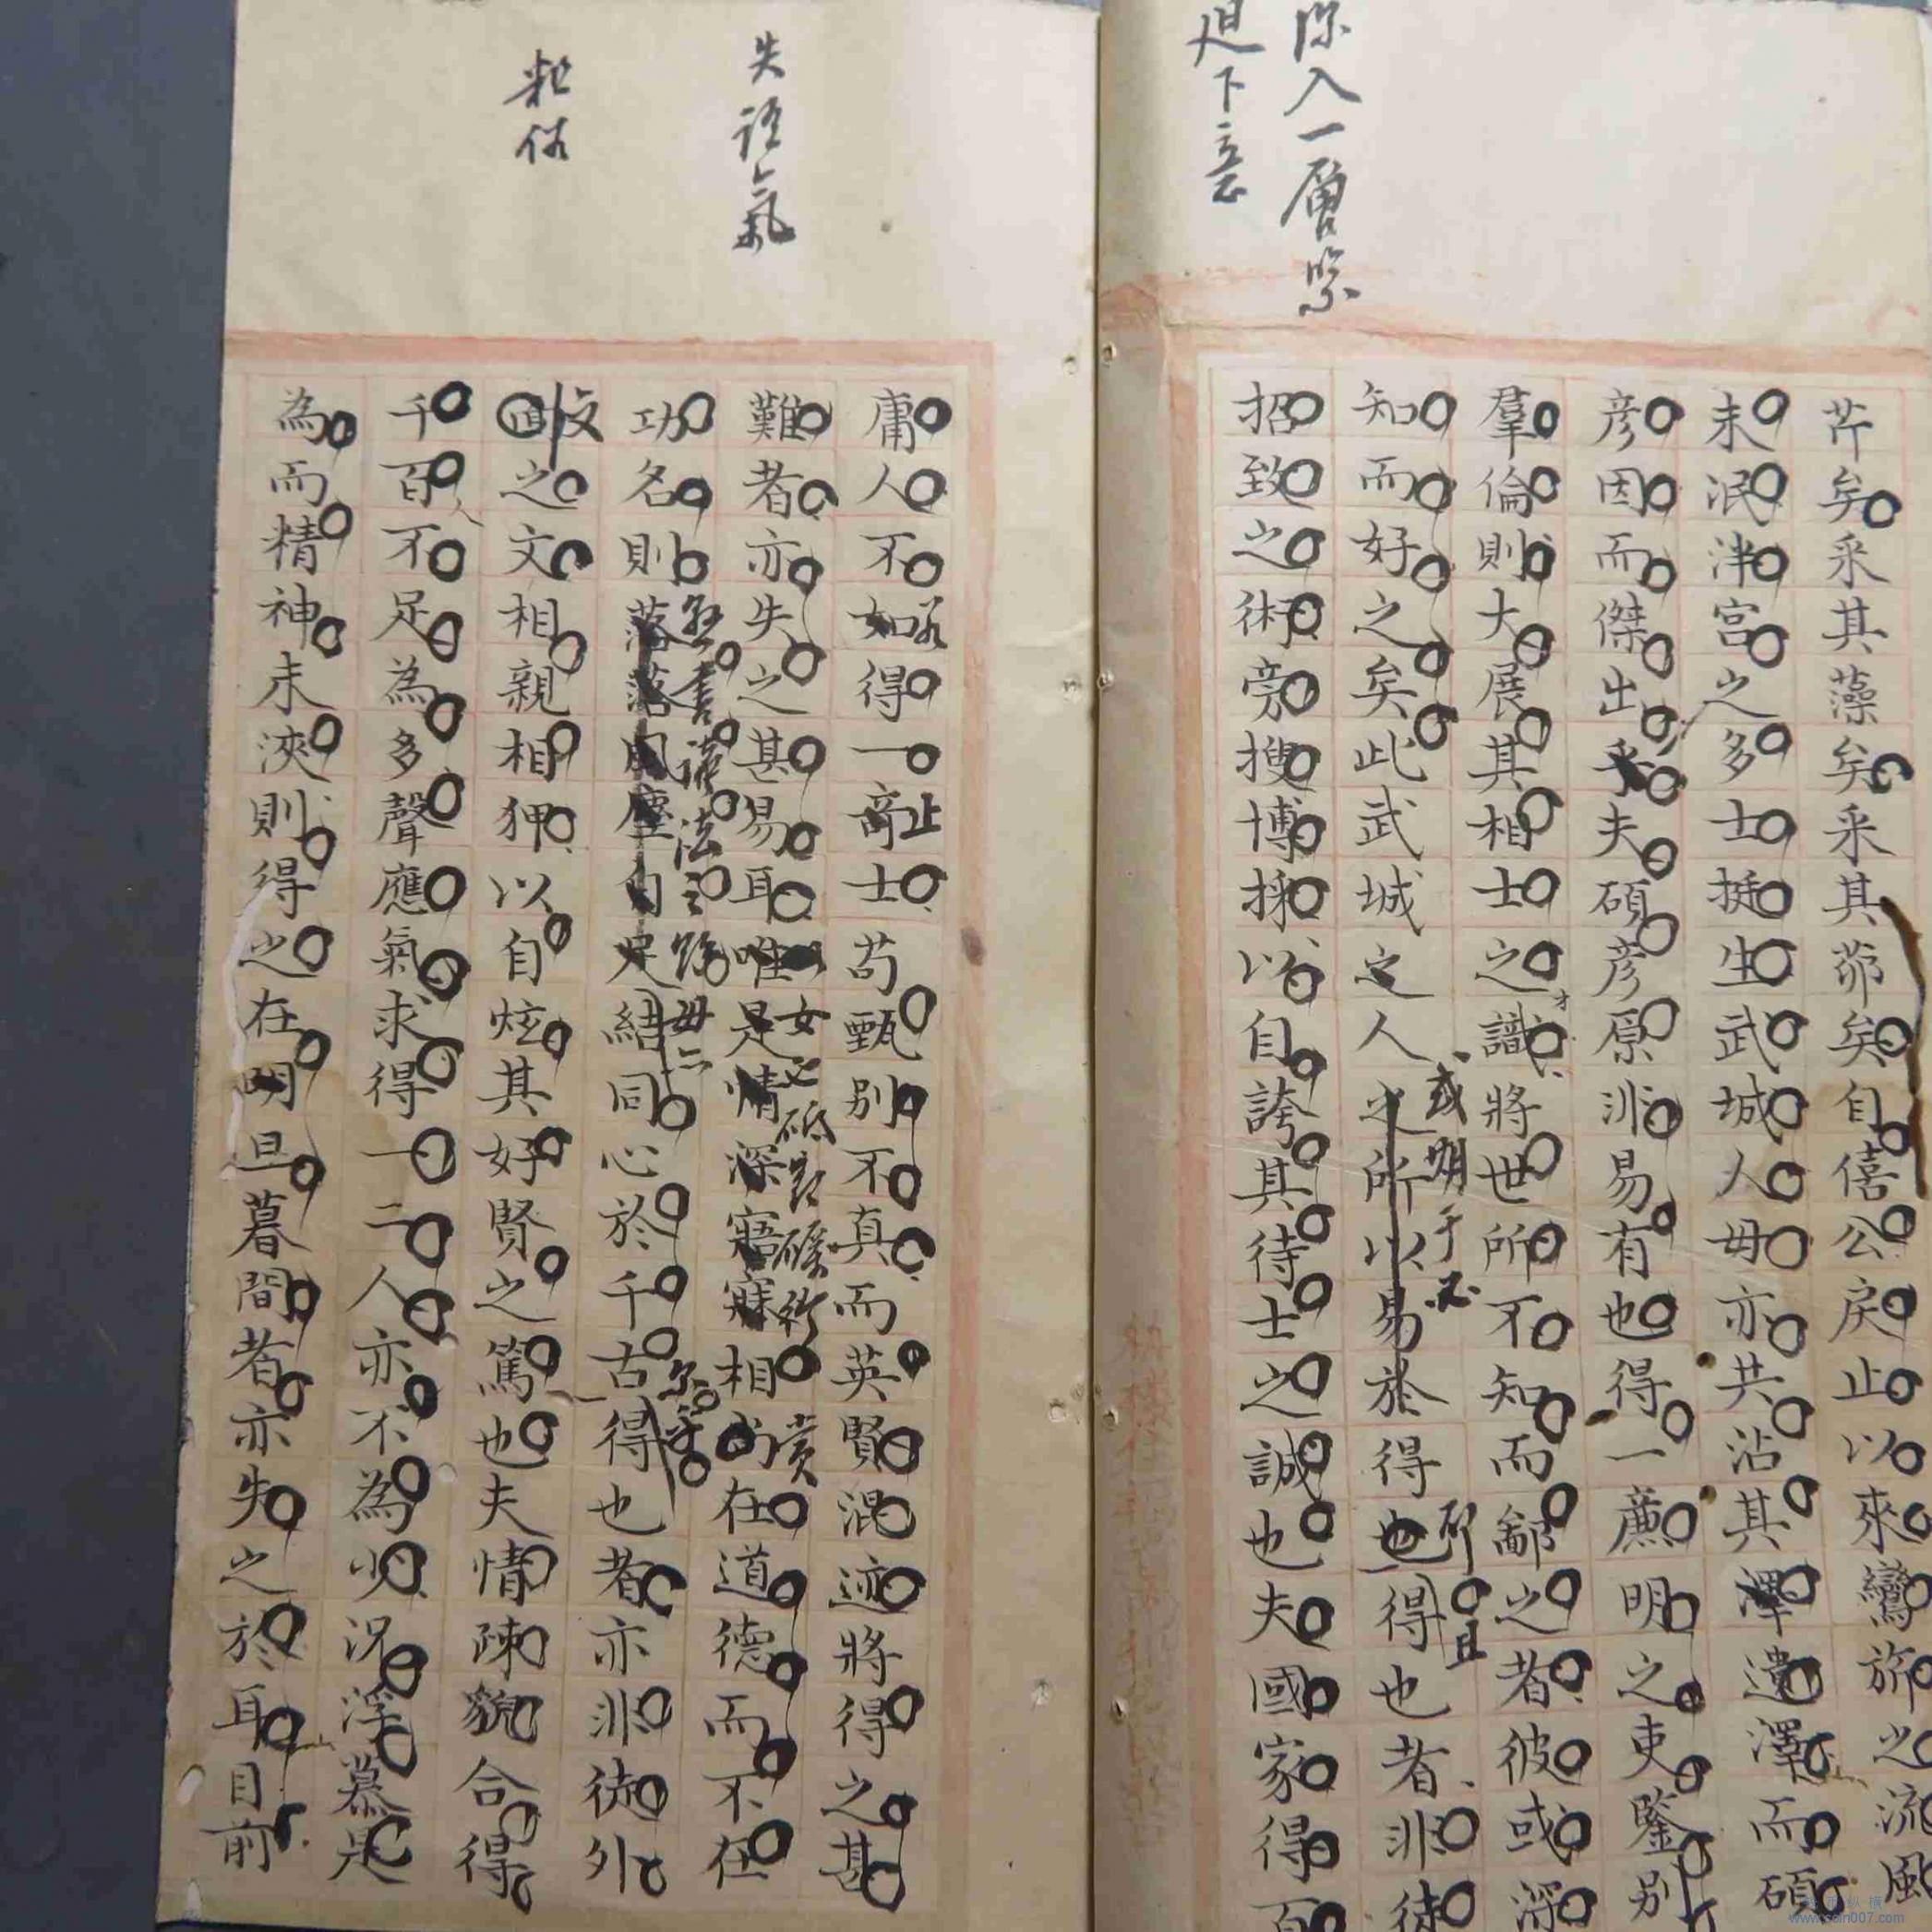 深入一層緊
芹矣采其藻矣采其茆矣自僖公戾止以來鸞旂之流風
未泯泮宮之多士挺生武城人毋亦共沾其澤遺澤而碩
彥因而傑出乎夫碩彥原非易有也得一薦明之吏鑒別
羣倫則大展其相士之識將世所不知而鄙之者彼或深
知而好之矣此武城之人之所以易於得也得也者非徒
招致之術旁搜博採以自誇其待士之誠也夫國家得百
才
或明于
所
且
失語氣
粗俗
庸人不如得一奇士苟甄别不真而英賢混迹將得之甚
難者亦失之甚易耳唯是情深寤寐相尚在道德而不在
功名則落落風塵自足結同心於千古得也者亦非徒外
面之文相親相狎以自炫其好賢之篤也夫情疎貌合得
千百不足為多聲應氣求得一二人亦不為少況浮慕是
為而精神未浹則得之在明旦暮間者亦失之於耳目前
止
砥
賞
讀法之
人
www.soin007.com